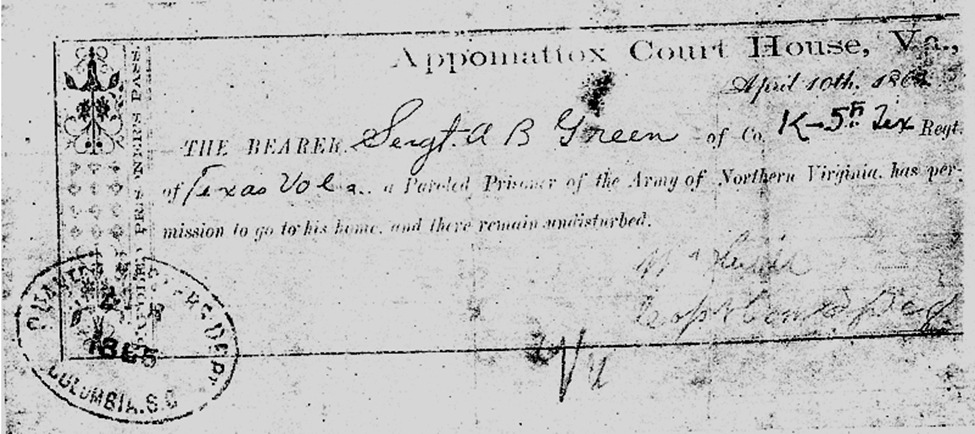 Appomattox Court House, Va.,
April 10th, 186
THE BEARER, Sergt. A B Green of Co. K–5th Tex Regt.
of Texas Vols., a Paroled Prisoner of the Army of Northern Virginia, has per-
mission to go to his home, and there remain undisturbed.
PAROLED PRISONER'S PASS.
QUARTERMASTER'S DEPT
1865
COLUMBIA, S.C